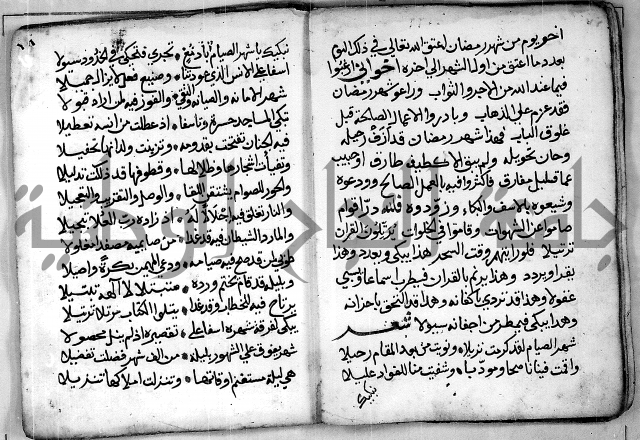 اخر يوم من شهر رمضان اعتق الله تعالى في ذلك اليوم
بعدد ما اعتق من اول الشهر الى اخره اخواني ارغبوا
فيما عند الله من الاجر والثواب وراعوا شهر رمضان
فقد عزم على الذهاب وبادروا الاعمال الصالحة قبل
غلوق الباب فهذا شهر رمضان قد ازف رحيله
وحان تحويله ولم يبق الا كطيف طارق او حبيب
عما قليل مفارق فاكثروا فيه بالعمل الصالح وودعوه
وشيعوه بالاسف والبكاء وزودوه فلله در اقوام
صاموا عن الشهوات وقاموا في الخلوات يرتلون القران
ترتيلا فلو رايتهم وقت السحر هذا يبكي ويعدد وهذا
يقرا ويردد وهذا يرنم بالقران فيطرب اسماعا ويسبي
عقولا وهذا قد تردى باكفانه وهذا قد التحق باحزانه
وهذا يبكي فيمطر من اجفانه سيولا شعر
شهر الصيام لقد كرمت نزيلا ونويت من بعد المقام رحيلا
واقمت فينا ناصحا ومودبا وشفيت منا للفواد عليلا
نبكيك
نبكيك يا شهر الصيام بادمع تجري فتحكي في الخدود سيولا
اسفا على الانس الذي عودتنا وصنيع فعل لا يزال جميلا
شهر الامانه والصيانه والتقى والفوز فيه لمن اراد قبولا
تبكي المساجد حسرة وتاسفا اذ عطلت من انسه تعطيلا
فيه الجنان تفتحت بقدومه وتزينت ولدانها تحفيلا
وتفيأت اشجارها وظلالها وقطوفها قد ذللت تذليلا
والحور للصوام يشتقن اللقا والوصل والتقريب والتبجيلا
والنار تغلق فيه اجلالا له
والمارد الشيطان فيه قد غدا من صايميه مصفدا مغلولا
طوبى لمن قد صح فيه صيامه ودعى المهيمن بكرة واصيلا
وبليله قد قام يختم ورده متبتلا لالهه تبتيلا
يتلوا الكتاب مرتلا ترتيلا
يبكي لفرقة شهره اسفا على تقصيره اذ لم ينل محصولا
شهر يفوق على الشهور بليلة من الف شهر فضلت تفضيلا
هي ليلة وتنزلت املاكها تنزيلا
جامعة الملك سعود